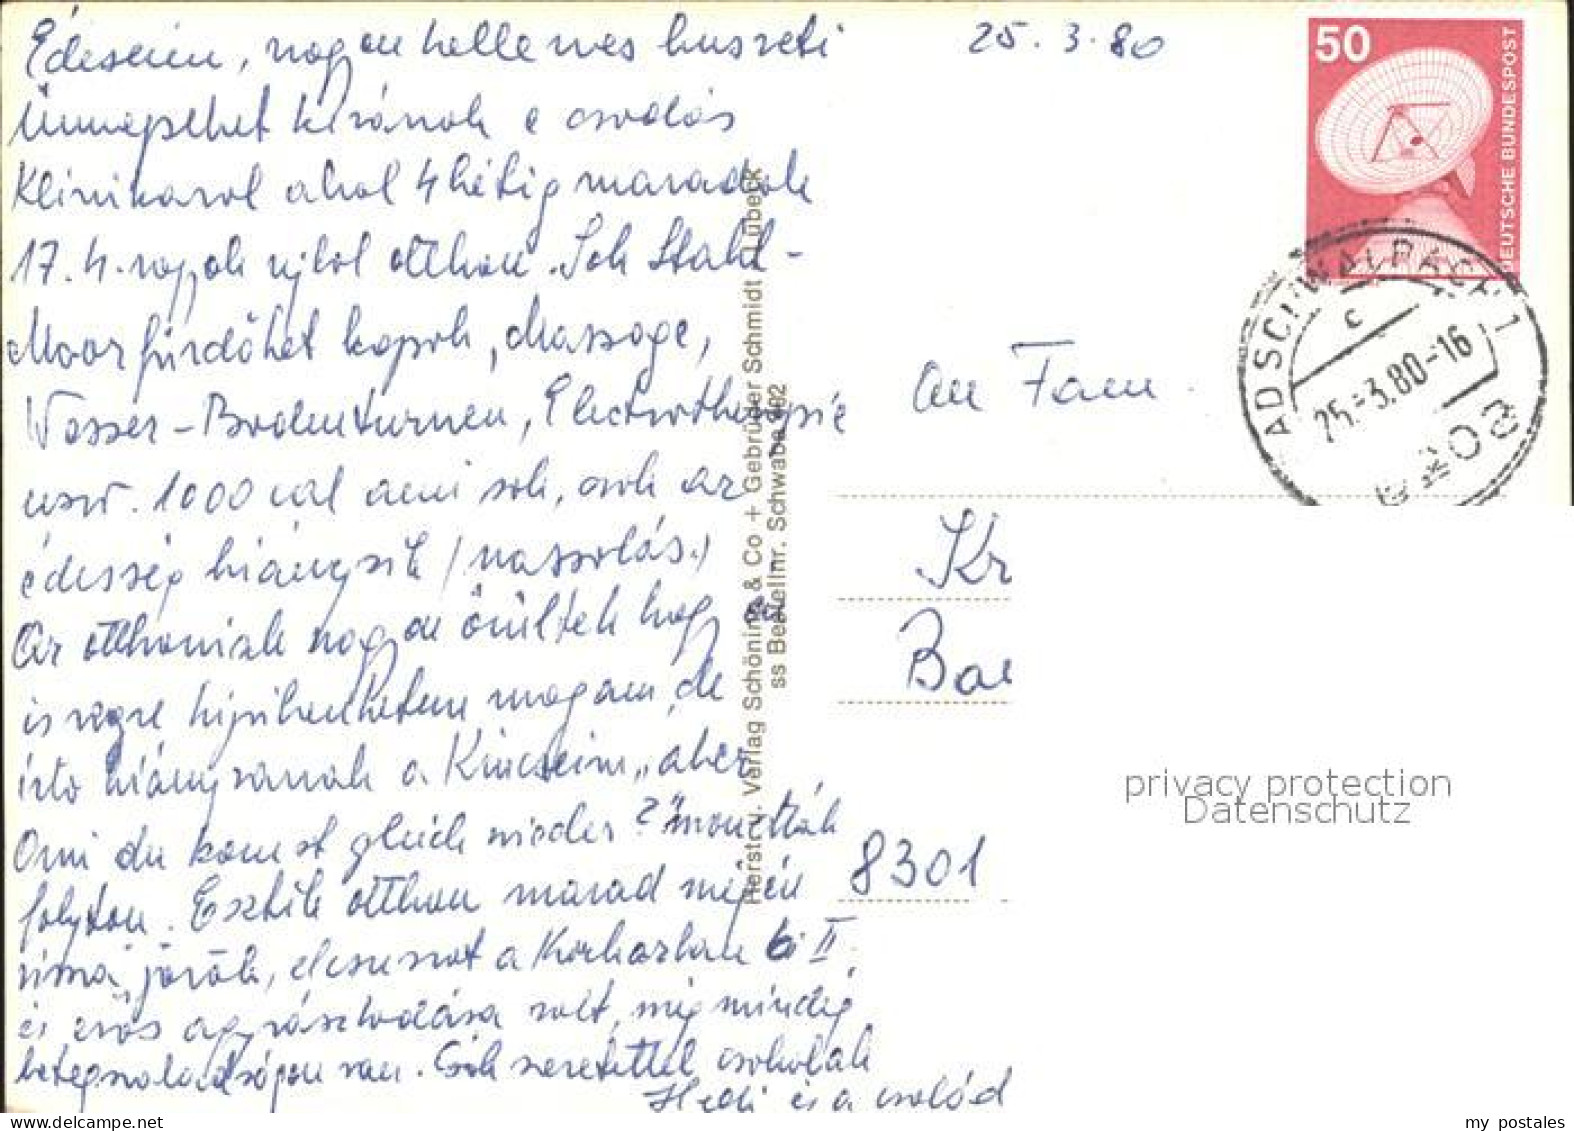 Édeseim, nagyon kellemes húsvéti
25.3.80
Ünnepeket kívánok e csodás
Klinikarol ahol 4 hétig maradok
17.4. vagyok ujbol otthon. Sok Stahl-
Moor fürdőket kapok, Massage,
Wasser-Bodenturnen, Electrotherapie
usw. 1000 cal ami sok, csak az
édesség hiányzik (nassolás.)
Az otthoniak nagyon örültek hogy én
is végre kipihenhetem magam, de
írto hiányzanak a Kincseim, „aber
Omi du komst gleich wieder?" mondták
folyton. Esztik otthon marad mivel
sima járók, elcsuszot a Korházban
és erős agyrászkodása volt, még mindig
betegszabadságon van. Sok szeretettel csokolak
Hedi és a család
50
DEUTSCHE BUNDESPOST
BAD SCHWALBACH 1
c
25.-3.80-16
an Fam.
Kr
Ba
8301
Herst. u. Verlag Schöning & Co + Gebrüder Schmidt Lübeck
ss Bestellnr. Schwaba 902
privacy protection
Datenschutz
my postales